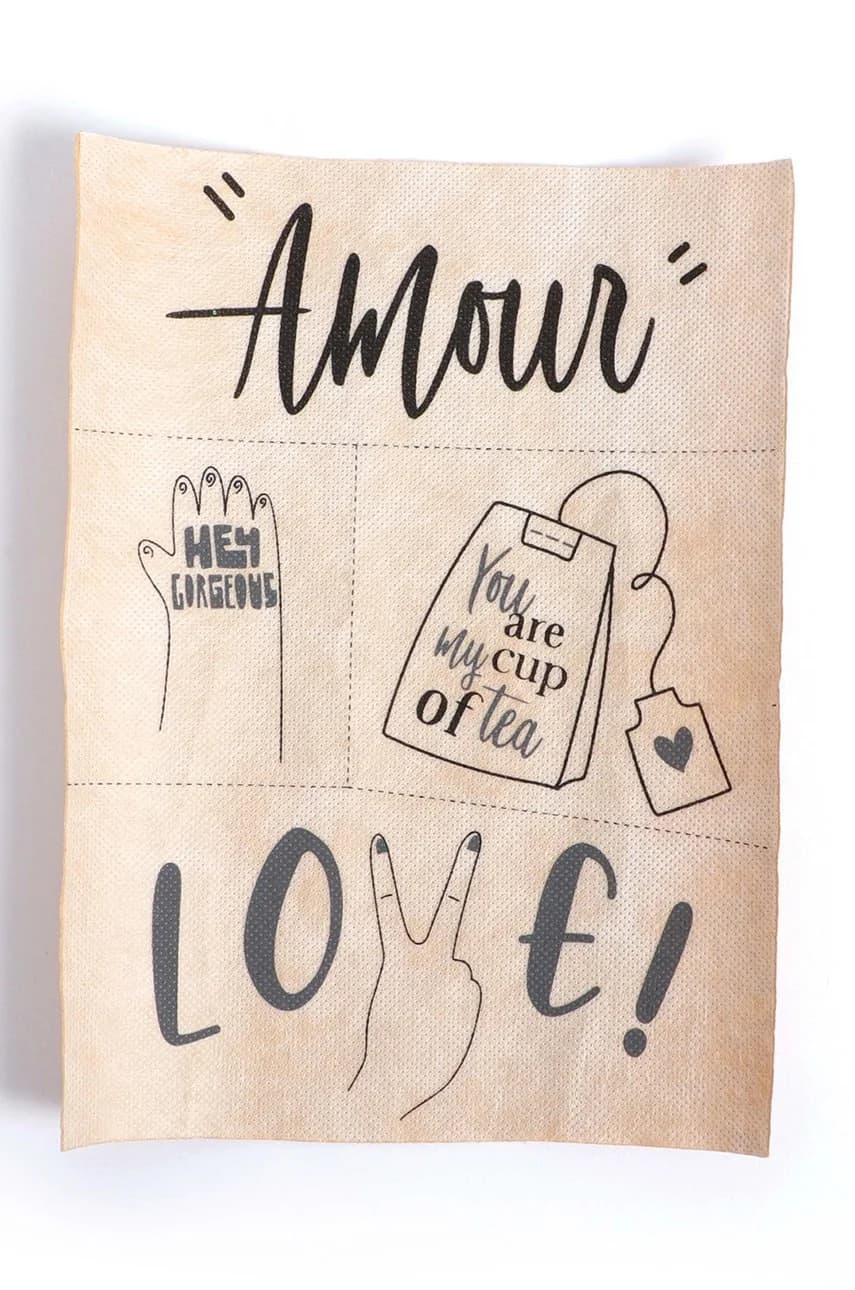 "Amour"
HEY
GORGEOUS
You
are
my cup
of tea
LOVE!